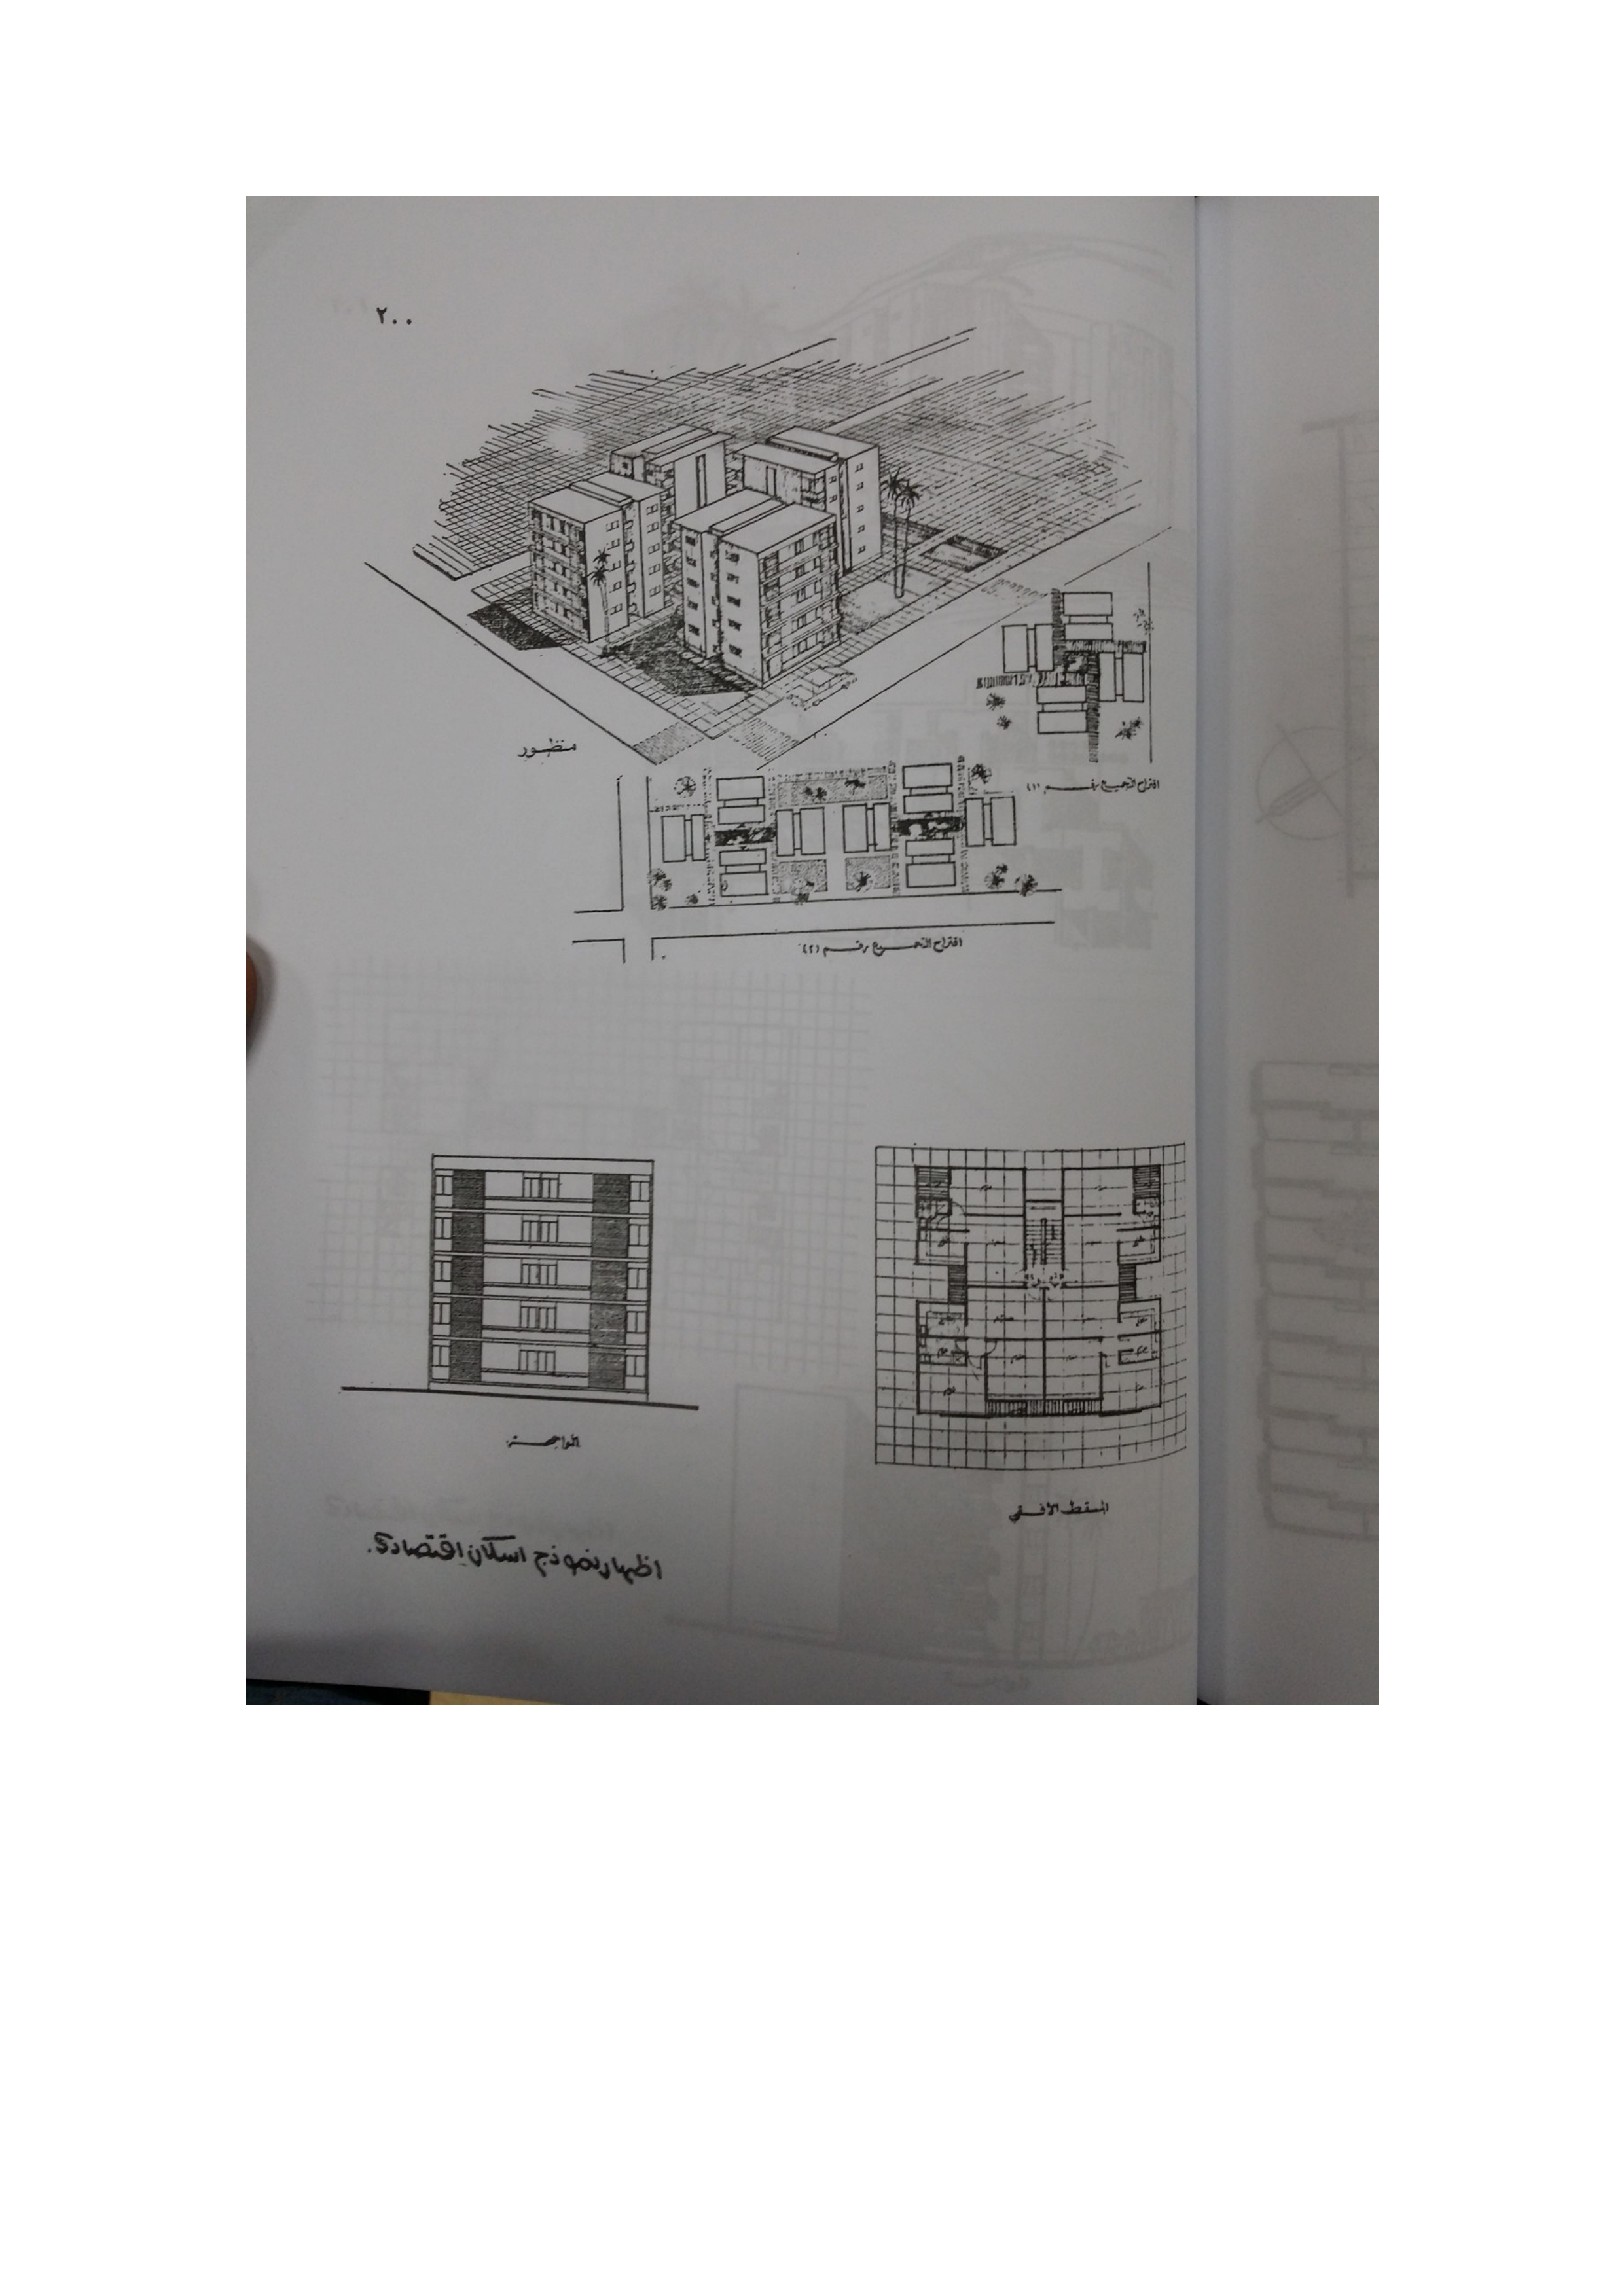 ٢٠٠
منظور
اقتراح التجميع رقم (١)
اقتراح التجميع رقم (٢)
الواجهة
المسقط الأفقي
اظهار نموذج اسكان اقتصادي.